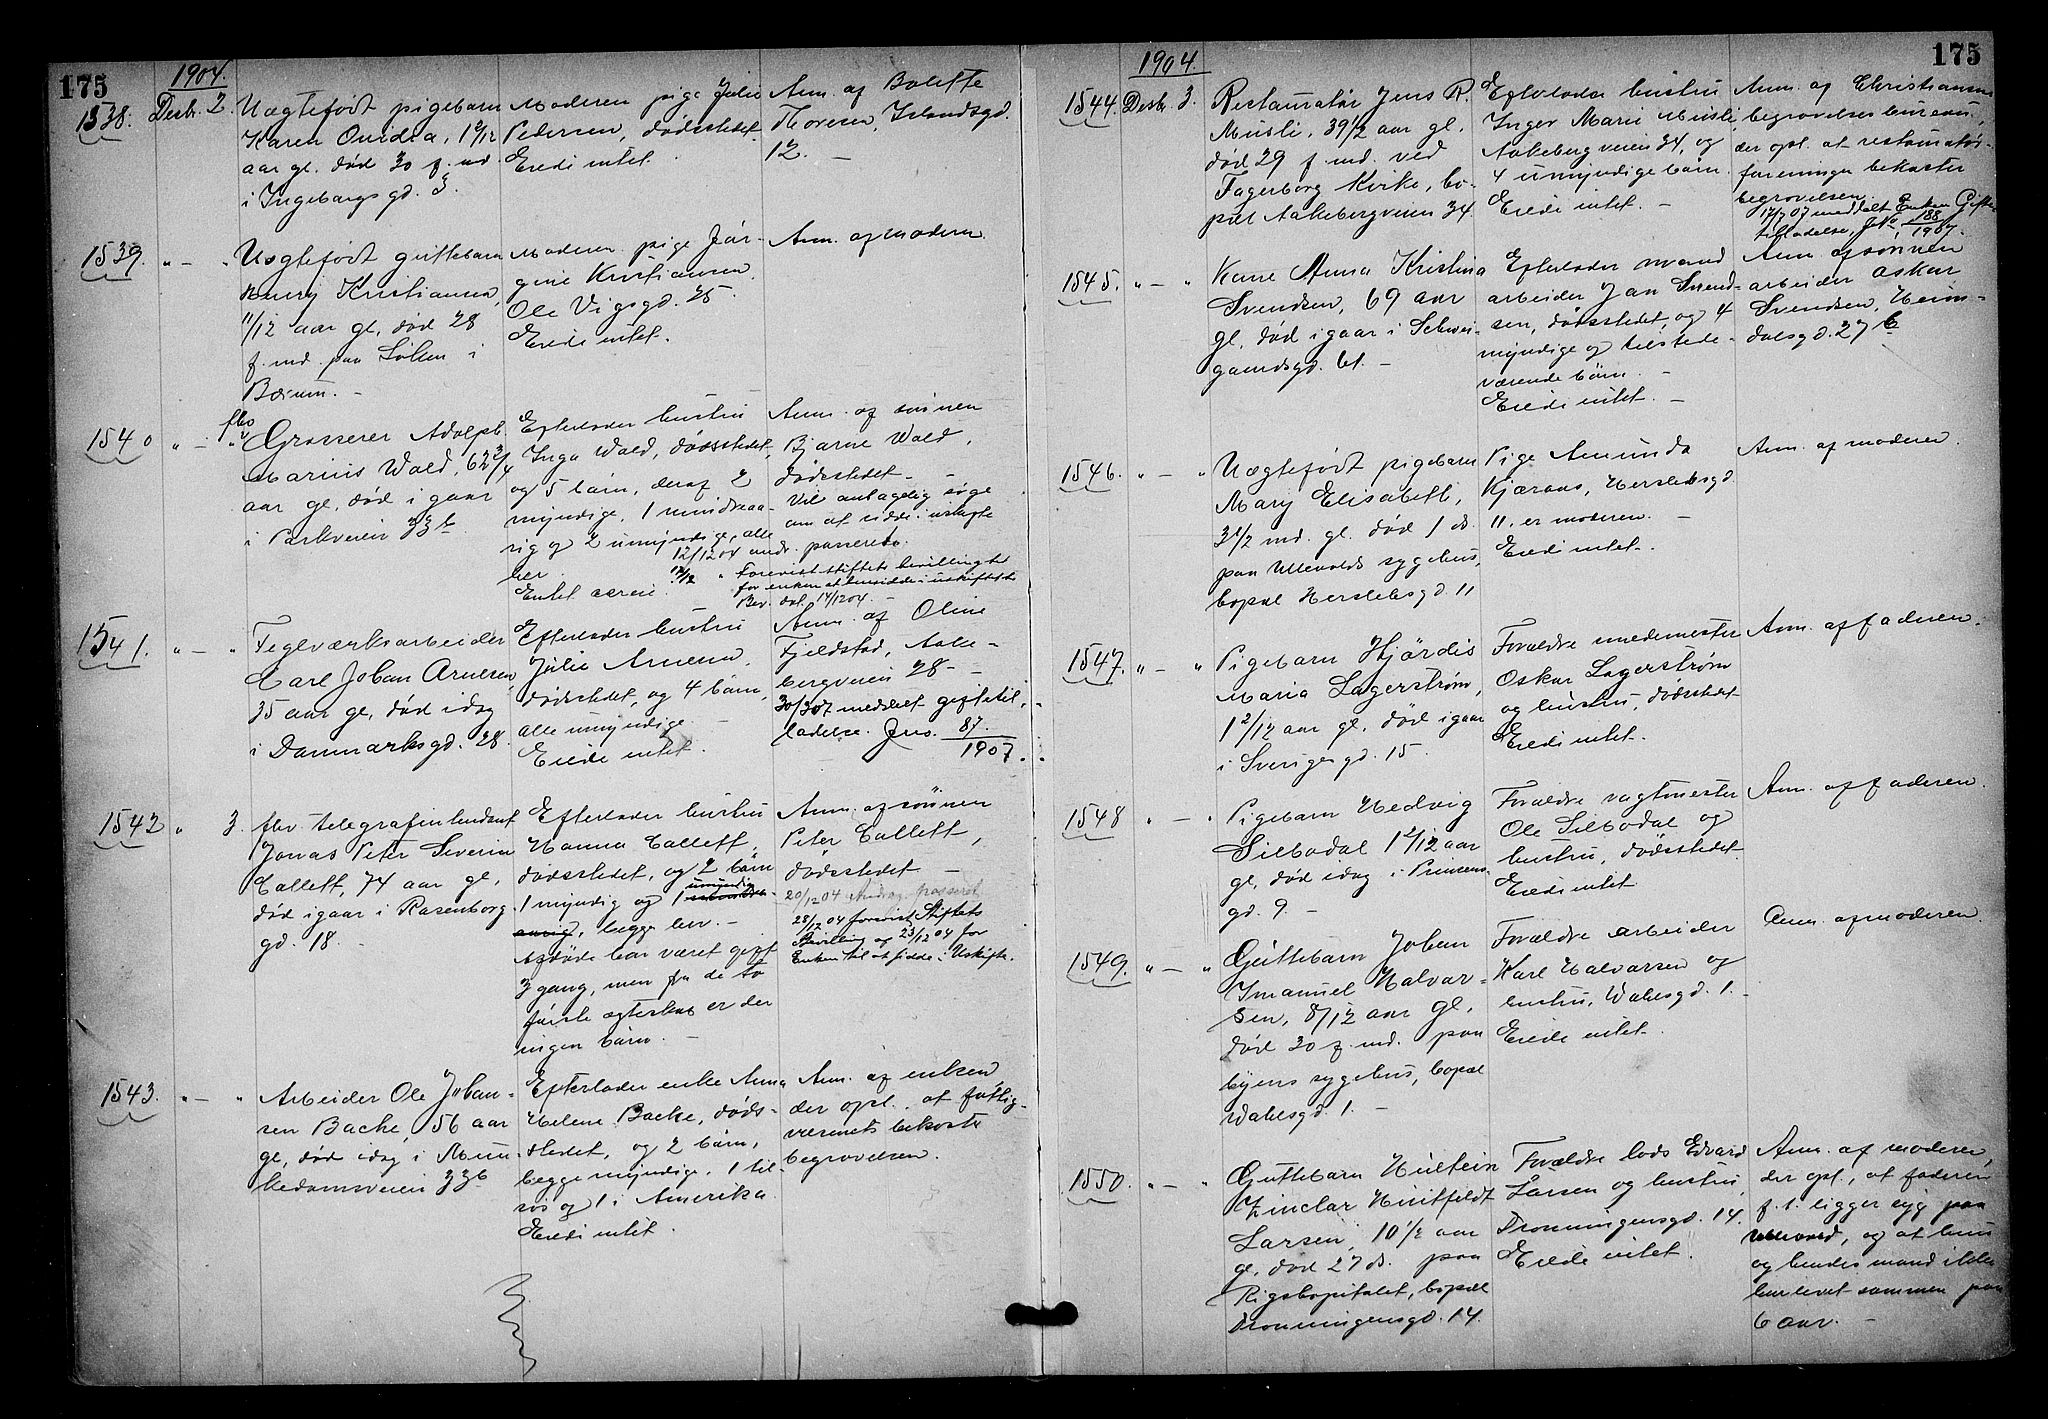 175
1904.
1538. Desbr. 2.
Uægtefødt pigebarn
Karen Ouidia, 1 2/12
aar gl. død 30 f. md.
i Ingeborgsgd. 3.
Moderen pige Julie
Pedersen, dødsstedet.
Eiedi intet.
Anm. af Bolette
Thoresen, Islandsgd.
12. —
1539. " — "
Uægtefødt guttebarn
Kristiansen,
11/12 aar gl. død 28
f. md. paa i
Bærum. —
Moderen pige Jør-
gine Kristiansen
Ole Vigsgd. 25.
Eiedi intet.
Anm. af moderen.
1540 " — "
fhv
Grosserer Adolph
Marius Wald, 62 3/4
aar gl., død igaar
i Parkveien 33b
Efterlader hustru
Inga Wald, dødsstedet,
og 5 børn, deraf 2
myndige, 1 mindreaa-
rig og 2 umyndige, alle
her.
Enkel aarein.
Anm. af sønnen
Bjarne Wald,
dødsstedet. —
Vil antagelig søge
om at sidde i uskifte
12/12 04 andr. passeret.
Forevist stiftets bevilling
for enken at hensidde i uskiftet
Bev. dat. 14/12 04. —
1541. " — "
Teglværksarbeider
Carl Johan Arnesen
35 aar gl., død idag
i Danmarksgd. 28.
Efterlader hustru
Julie Arnesen,
dødsstedet, og 4 børn,
alle umyndige.
Eiedi intet.
Anm. af Oline
Fjeldstad, Aake-
bergveien 28 —
30/3 07 meddelt giftetil-
ladelse. Jno. 87/1907.
1542 " 3.
fhv telegrafintendant
Jonas Peter Severin
Collett, 74 aar gl,
død igaar i Rosenborg-
gd. 18. —
Efterlader hustru
Hanna Collett,
dødsstedet, og 2 børn
umyndig
1 myndig og 1 mindre-
aarig, begge her. —
Afdøde har været gift
3 gang, men fra de to
første ægteskab er der
ingen børn. —
Anm. af sønnen
Peter Collett,
dødsstedet —
20/12 04 Andrag. passeret
28/12 04 forevist Stiftets
Bevilling af 23/12 04 for
Enken til at sidde i Uskifte.
1543. " — "
Arbeider Ole Johan-
sen Backe, 56 aar
gl, død idag i Mun-
kedamsveien 33b
Efterlader enke Anna
Helene Backe, døds-
stedet, og 2 børn,
begge myndige, 1 til-
søs og 1 i Amerika
Eiedi intet.
Anm. af enken
der opl. at fattig-
væsenet bekoster
begravelsen.
175
1904.
1544. Desbr. 3.
Restauratør Jens R.
Musli, 39 1/2 aar gl.
død 29 f. md. ved
Fagerborg Kirke, bo-
pæl Aakebergveien 34.
Efterlader hustru
Inger Marie Musli,
Aakebergveien 34, og
4 umyndige børn.
Eiedi intet. —
Anm. af Christiansens
begravelsesbureau,
der opl. at restauratør-
foreningen bekoster
begravelsen.
17/7 07 meddelt Enken Gifte-
tilladelse, JNo 188/1907.
1545. " — "
Kone Anna Kristina
Svendsen, 69 aar
gl, død igaar i Schwei-
gaardsgd. 61. —
Efterlader mand
arbeider Jan Svend-
sen, dødsstedet, og 4
myndige og tilstede-
værende børn. —
Eiedi intet. —
Anm. af sønnen
arbeider Oskar
Svendsen, Heim-
dalsgd. 27 b
1546. " — "
Uægtefødt pigebarn
Mary Elisabeth,
3 1/2 md. gl. død 1 ds.
paa Ullevolds sygehus,
bopæl Herslebsgd. 11
Pige Amunda
Kjæraas, Herslebsgd
11. er moderen. —
Eiedi intet.
Anm. af moderen.
1547. " — "
Pigebarn Hjørdis
Maria Lagerstrøm,
1 2/12 aar gl, død igaar
i Sverigesgd. 15.
Forældre smedemester
Oskar Lagerstrøm
og hustru, dødsstedet
Eiedi intet.
Anm. af faderen.
1548 " — "
Pigebarn Hedvig
Silbodal 1 2/12 aar
gl, død idag i Prinsens-
gd. 9. —
Forældre vagtmester
Ole Silbodal og
hustru, dødsstedet.
Eiedi intet
Anm. af faderen.
1549. " — "
Guttebarn Johan
Imanuel Halvor-
sen, 8/12 aar gl,
død 30 f. md. paa
byens sygehus, bopæl
Wahlsgd. 1. —
Forældre arbeider
Karl Halvorsen og
hustru, Wahlsgd. 1. —
Eiede intet.
Anm. af moderen.
1550. " — "
Guttebarn
Zinclar Huitfeldt
Larsen, 10 1/2 aar
gl, død 27 ds. paa
Rigshospitalet, bopæl
Dronningensgd. 14.
Forældre lods Edvard
Larsen og hustru,
Dronningensgd. 14.
Eiede intet.
Anm. af moderen,
der opl., at faderen
f. t. ligger syg paa
Ullevold, og at hun
og hendes mand ikke
har levet sammen paa
6 aar. —